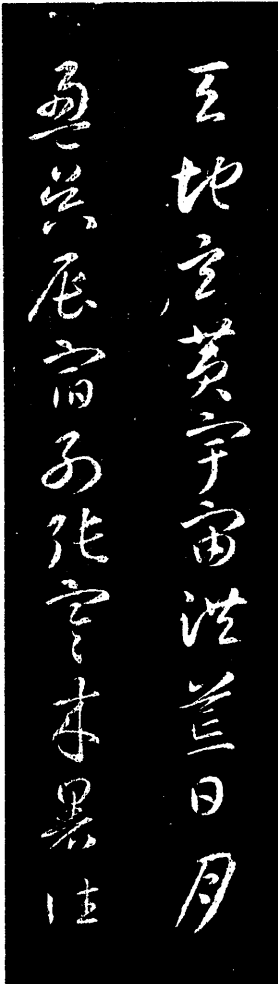 天地玄黃宇宙洪荒日月
盈昃辰宿列張寒來暑往